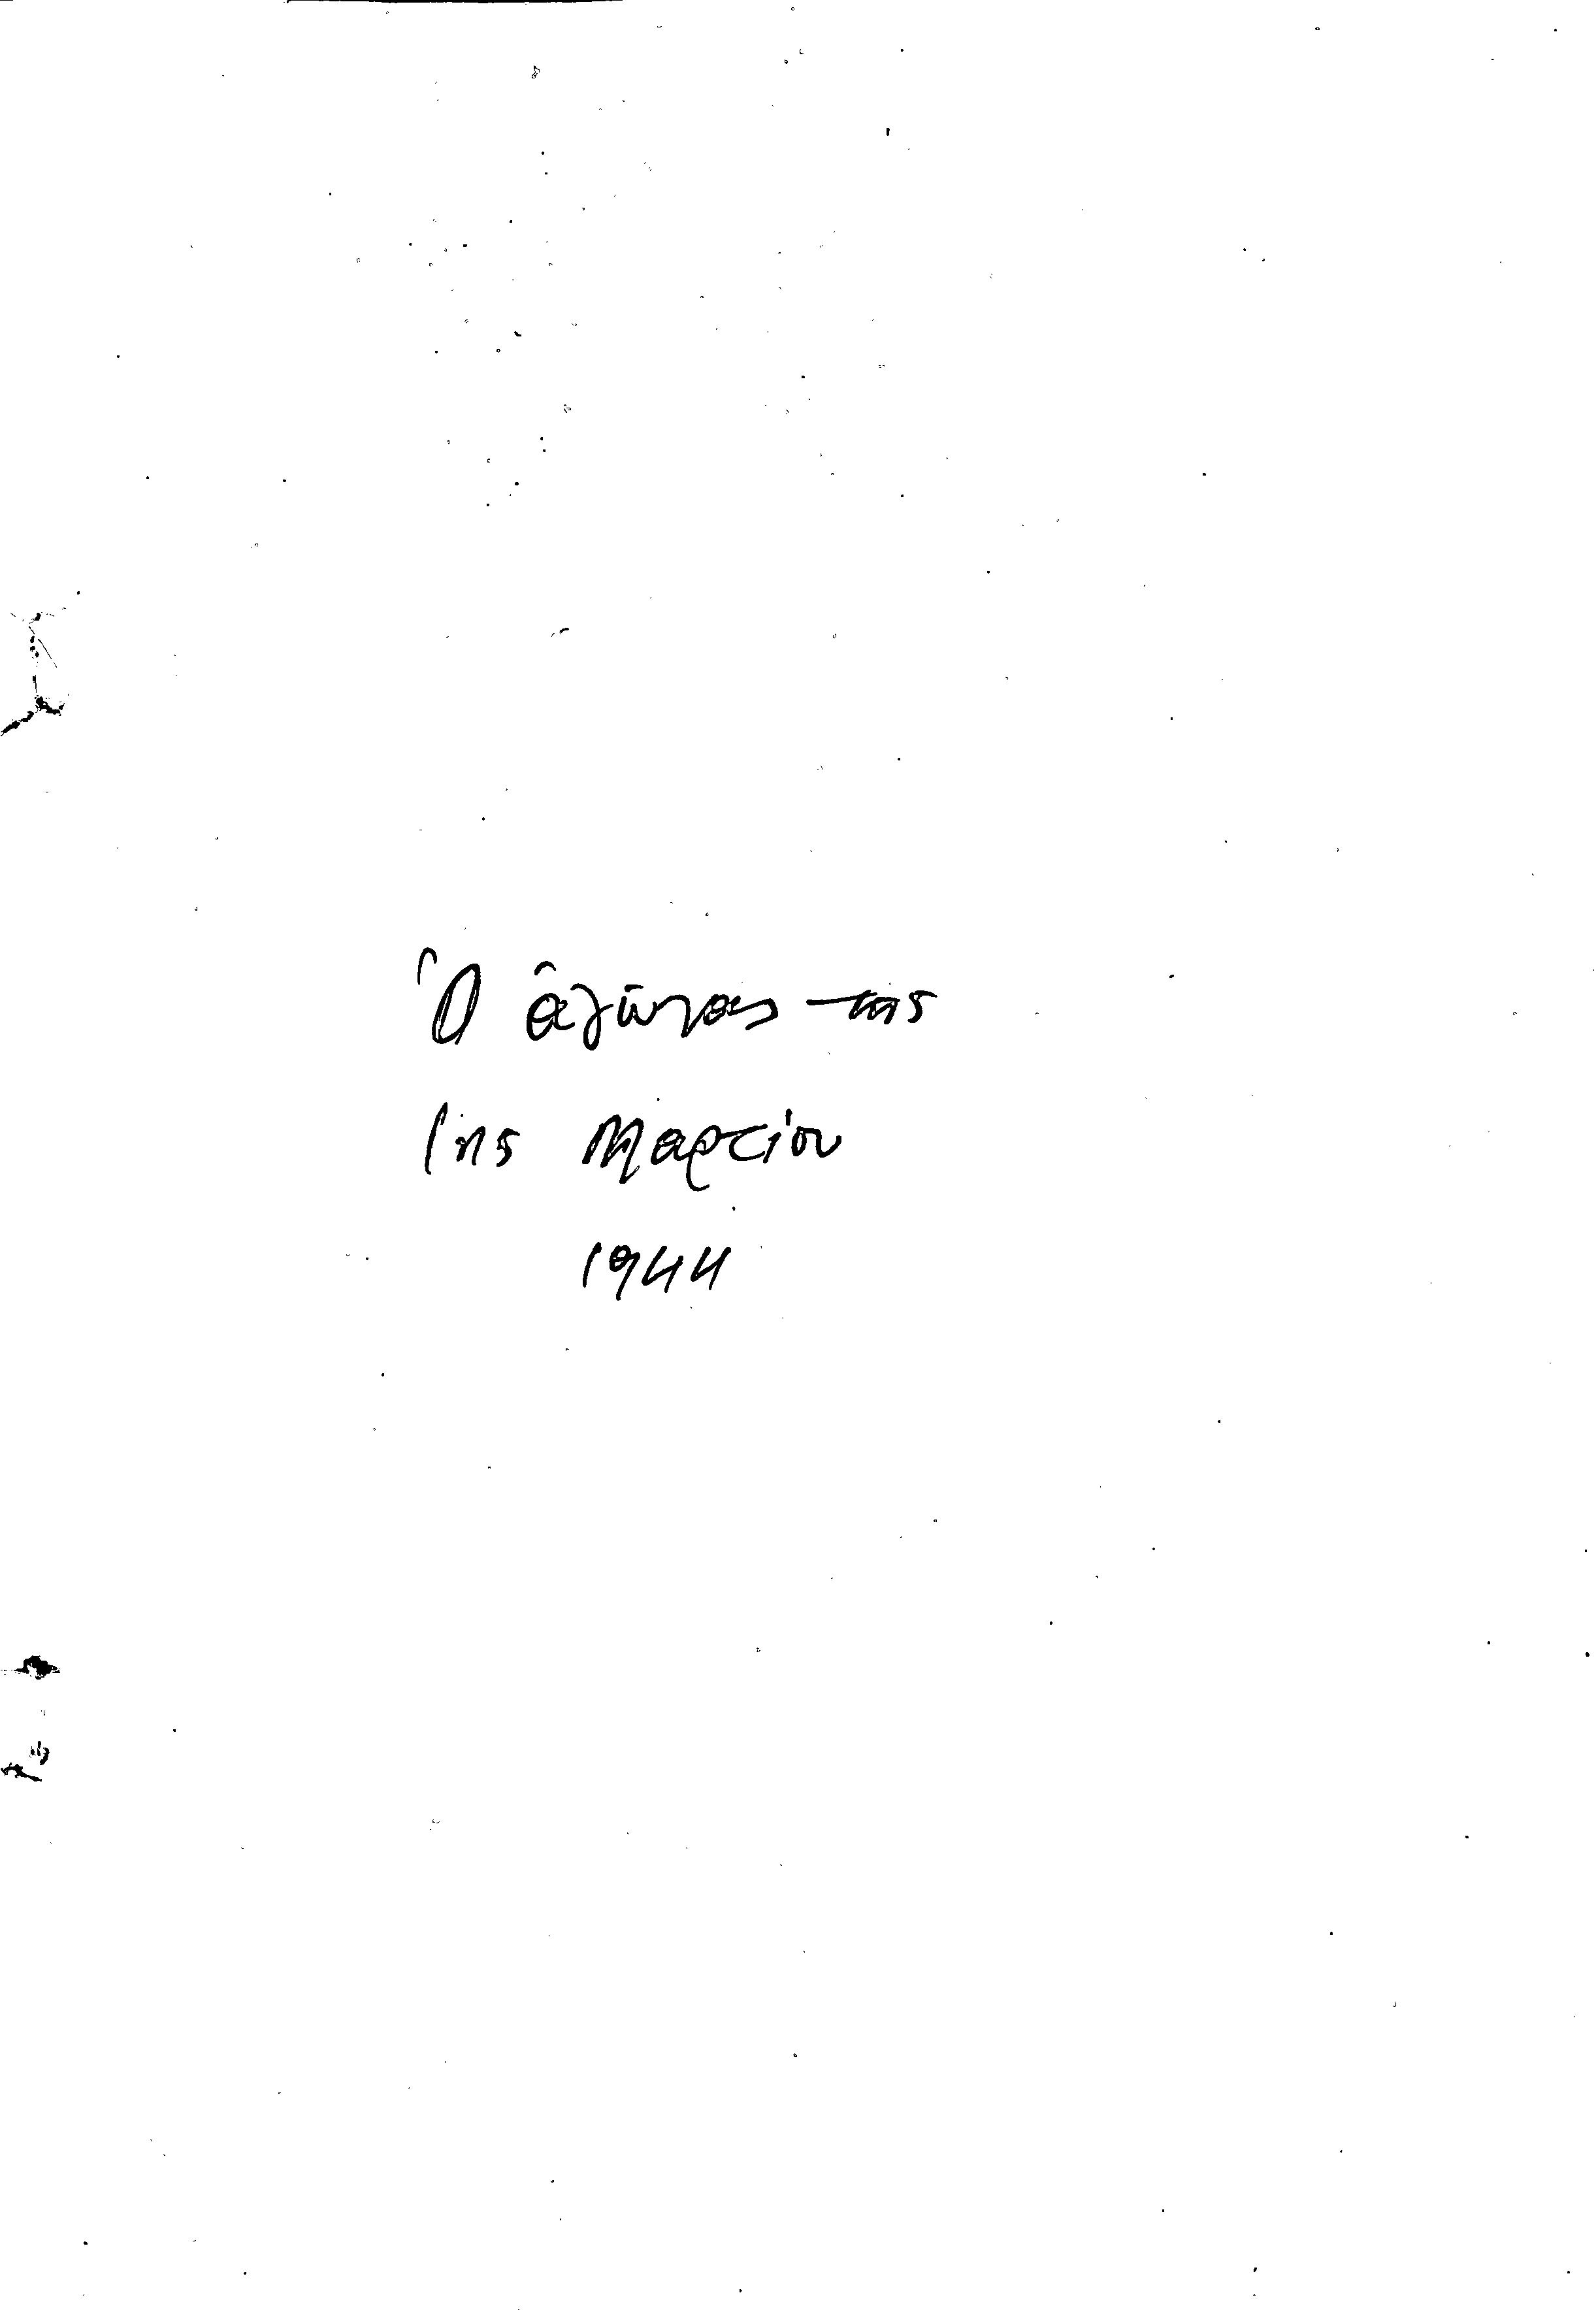 Ὁ ἀγῶνας τῆς
1ης Μαρτίου
1944